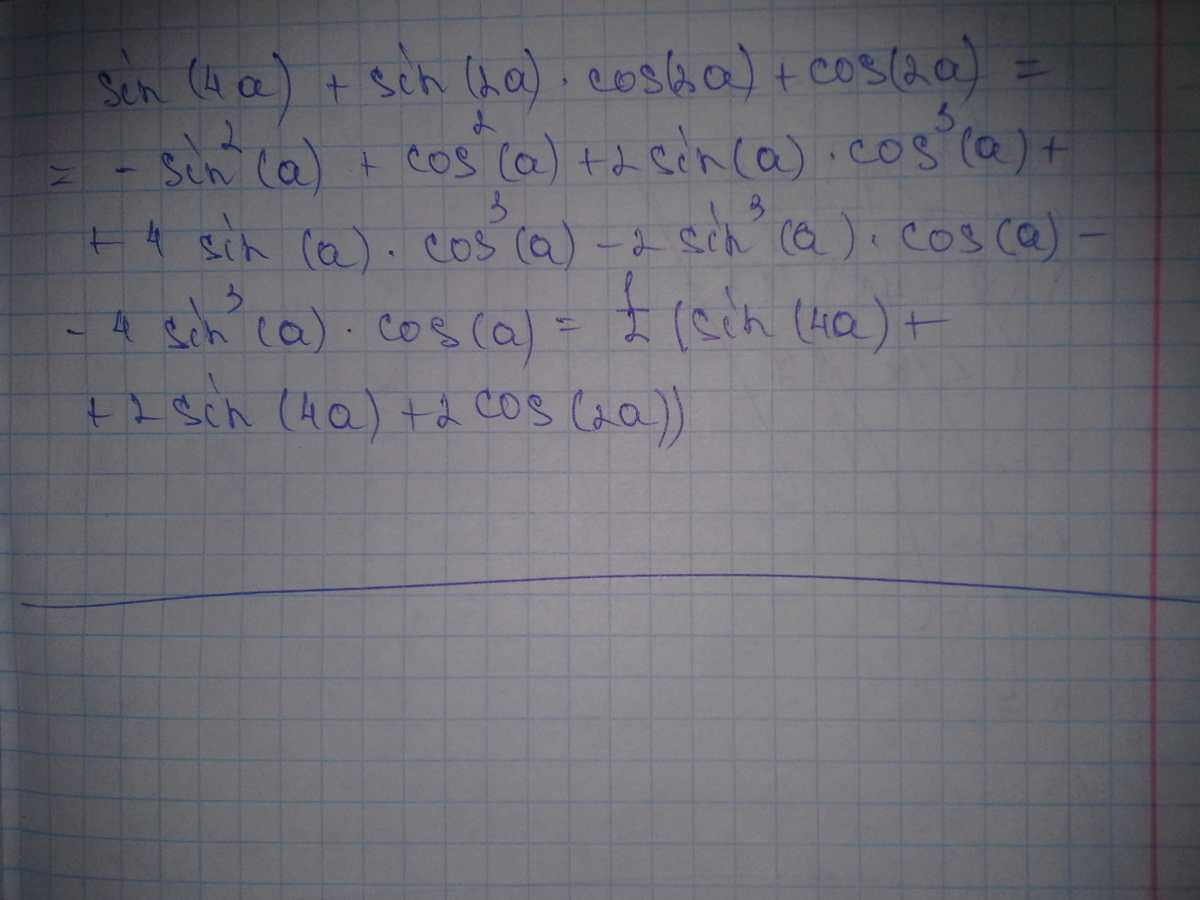 sin (4a) + sin (2a) · cos(2a) + cos(2a) =
= - sin²(a) + cos²(a) + 2 sin(a) · cos³(a) +
+ 4 sin (a) · cos³(a) - 2 sin³(a) · cos(a) -
- 4 sin³(a) · cos(a) = 1/2 (sin (4a) +
+ 2 sin (4a) + 2 cos (2a))